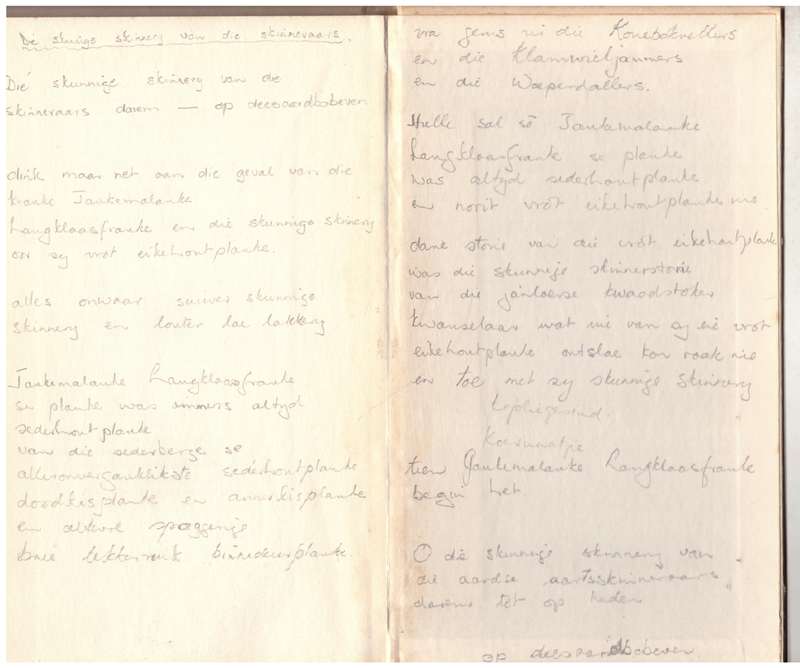 De skunige skinnery van die skinneraars.
Dié skunnige skinnery van die
skinneraars darem — op deesaardbobeven
dink maar net aan die geval van die
kranke Jankemalanke
Langklaasfranke en die skunnige skinnery
oor sy vrot eikehoutplanke.
alles onwaar suiwer skunnige
skinnery en louter lae lakkery
Jankemalanke Langklaasfranke
se planke was immers altyd
sederhoutplanke
van die sederberge se
alleronverganklikste sederhoutplanke
doodkisplanke en annerkisplanke
en altwee
breë lekkerruik binnedeurplanke.
vra gerus vir die
en die
en die
Hulle sal sê Jankemalanke
Langklaasfranke se planke
was altyd sederhoutplanke
en nooit vrot eikehoutplanke nie
dane storie van die vrot eikehoutplanke
was die skunnige skinnerstorie
van die jaloerse kwaadstoker
kwanselaar wat nie van sy eie vrot
eikehoutplanke ontslae kon raak nie
en toe met sy skunnige skinnery
teen Jankemalanke Langklaasfranke
begin het
O die skunnige skinnery van
die aardse aartsskinneraars
darem tot op hede
op deesaardbobeven